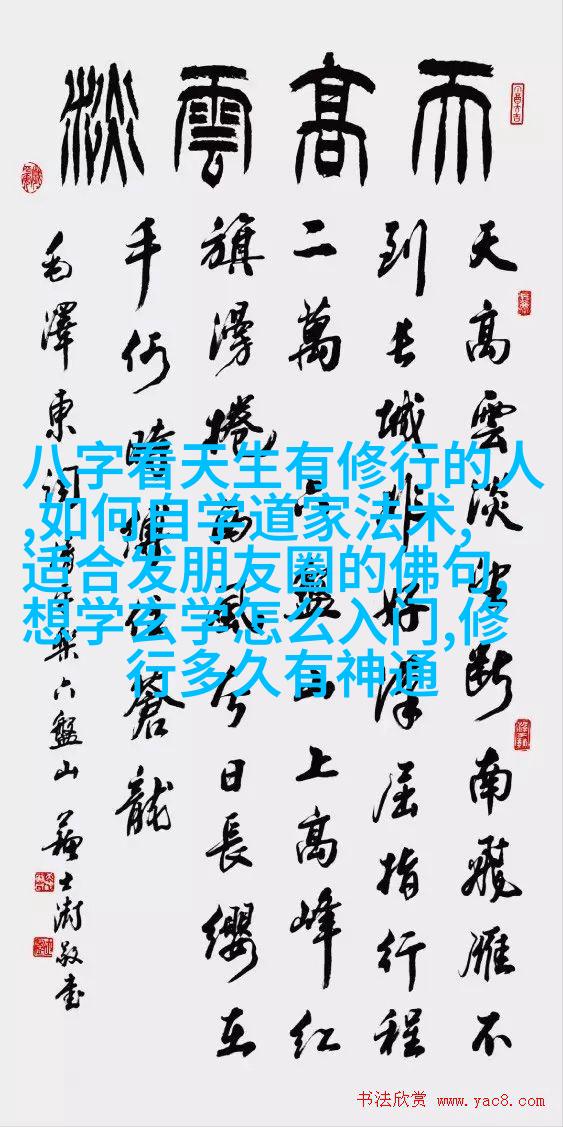 天高雲淡
天高雲淡望斷南飛雁不
到長城非好漢屈指行程
二萬六盤山上高峰紅
旗漫捲西風今日長纓在
手何時縛住蒼龍
毛澤東詞清平樂六盤山 蘇士澍敬書
八字看天生有修行的人
,如何自学道家法术,
适合发朋友圈的佛句,
想学玄学怎么入门,修
行多久有神通
书法欣赏 www.yac8.com